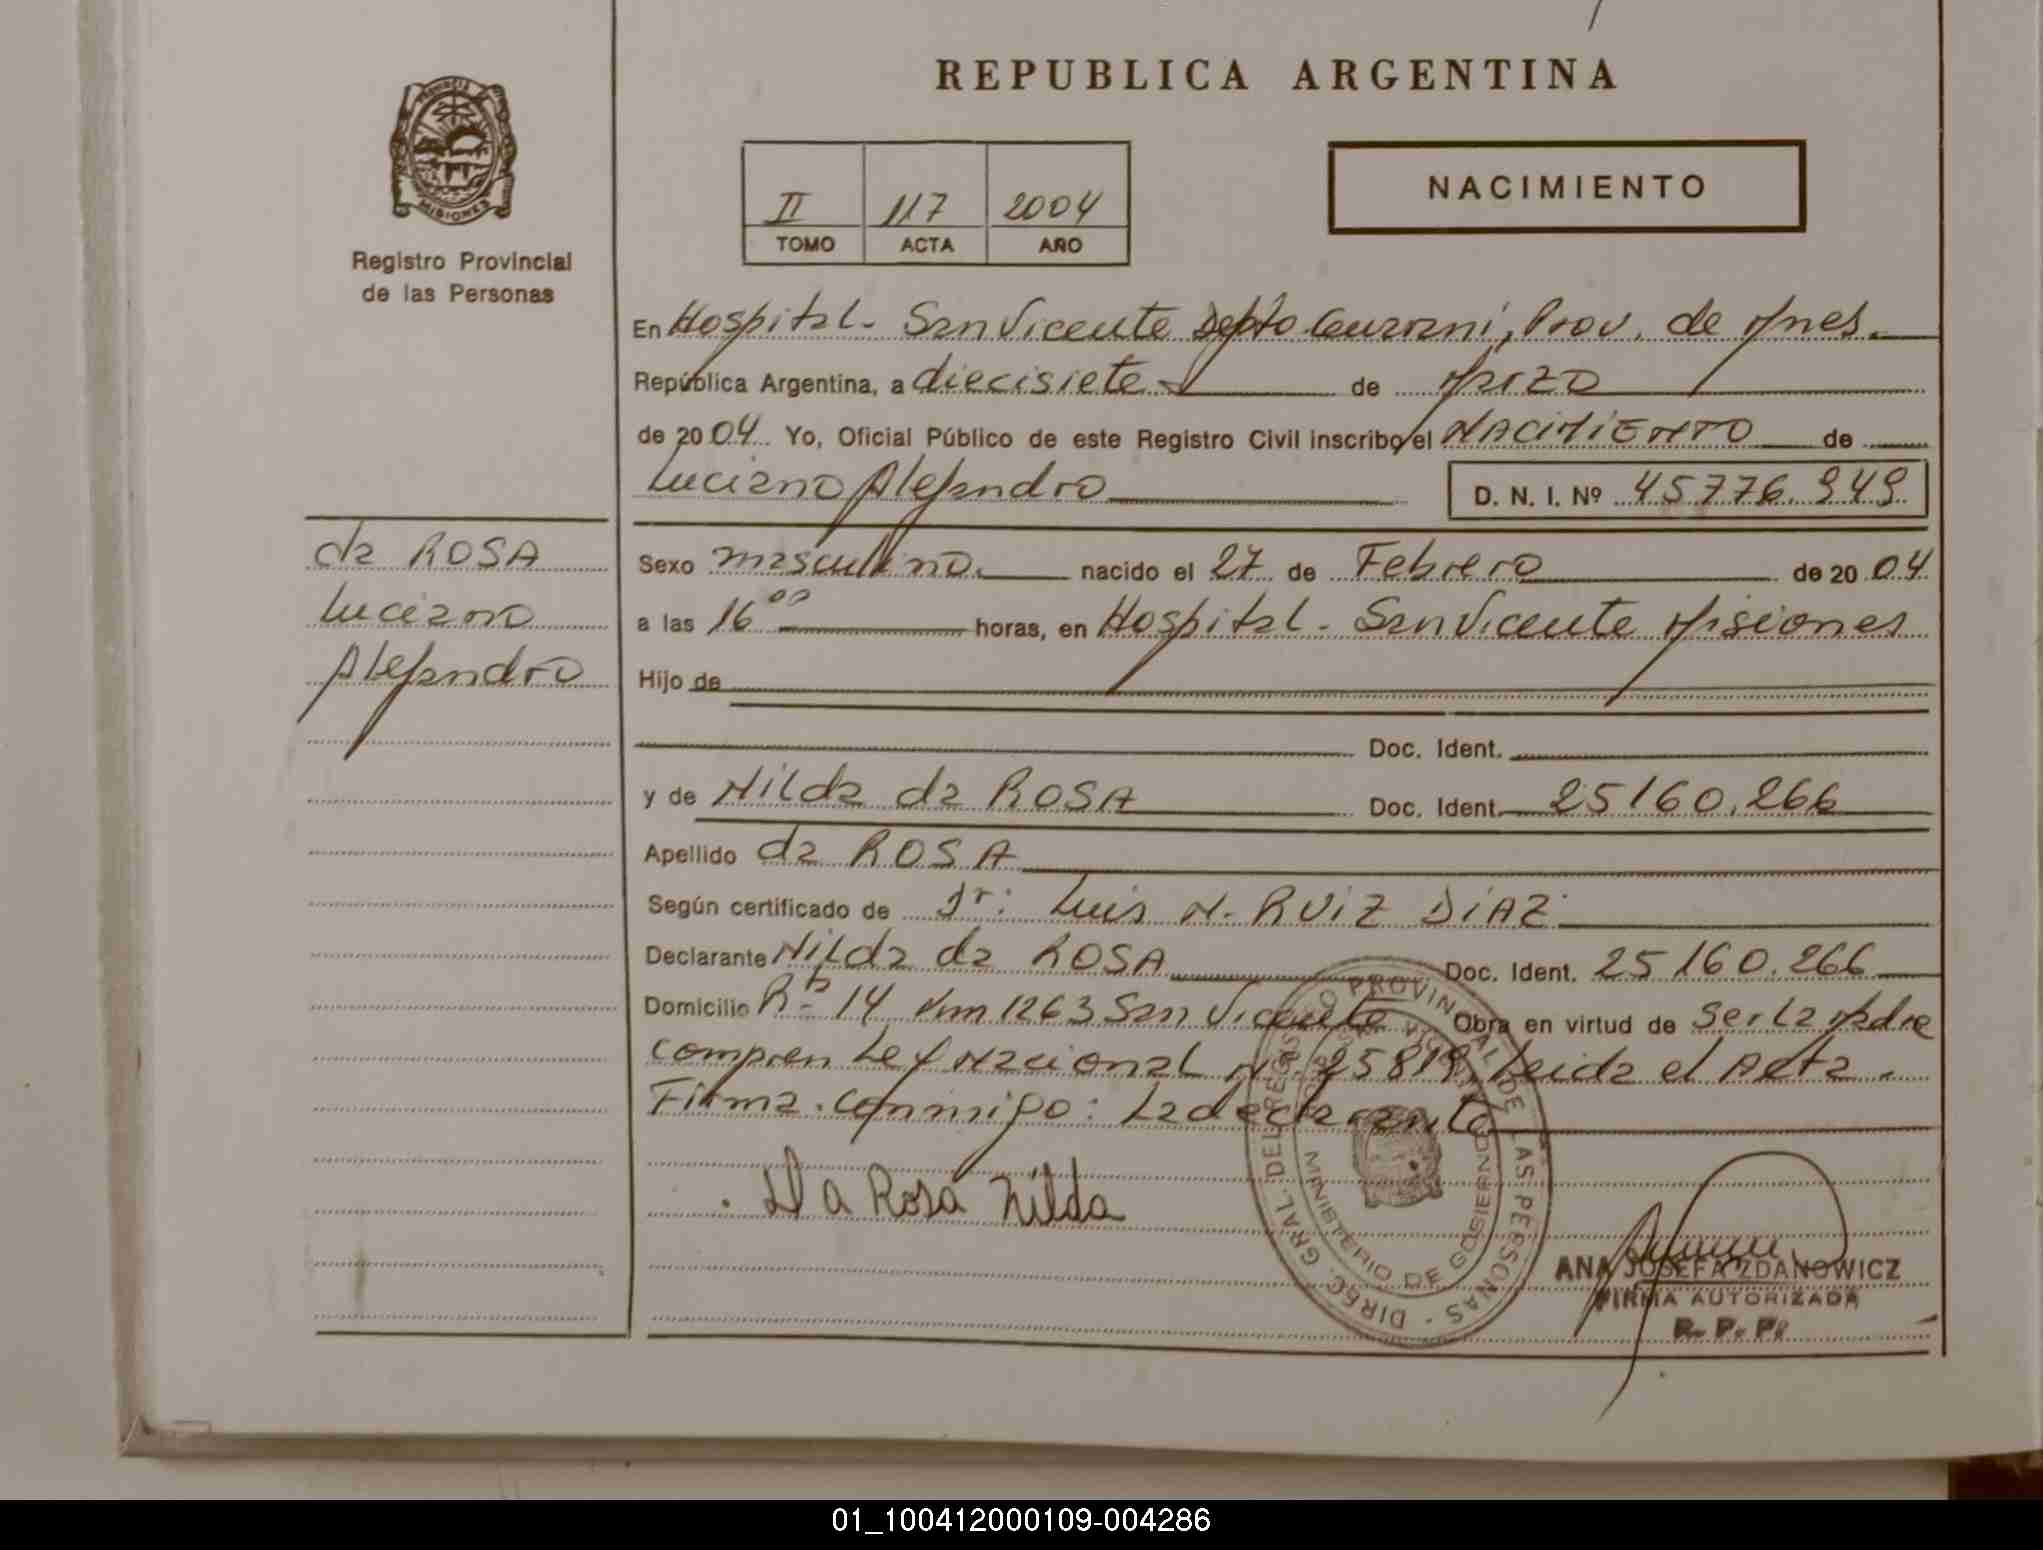 REPUBLICA ARGENTINA
PROVINCIA DE
MISIONES
Registro Provincial
de las Personas
II 117 2004
TOMO ACTA AÑO
NACIMIENTO
En Hospital- San Vicente Depto Guarani, Prov. de Mnes.
República Argentina, a diecisiete de Marzo
de 2004. Yo, Oficial Público de este Registro Civil inscribo el NACIMIENTO de
Luciano Alejandro
D. N. I. Nº 45776.949
da ROSA
Luciano
Alejandro
Sexo masculino. nacido el 27 de Febrero de 2004
a las 16 00 horas, en Hospital- San Vicente Misiones
Hijo de
Doc. Ident.
y de Nilda da ROSA Doc. Ident. 25160.266
Apellido da ROSA
Según certificado de Dr: Luis N. RUIZ DIAZ
Declarante Nilda da ROSA Doc. Ident. 25160.266
Domicilio R.n 14 Km 1263 San Vicente Obra en virtud de Ser La Madre
compren Ley Nacional Nº 25819, Leida el Acta.
Firma. Conmigo: La declarante
Da Rosa Nilda
DIREC. GRAL. DEL REGISTRO PROVINCIAL DE LAS PERSONAS -
MINISTERIO DE GOBIERNO
ANA JOSEFA ZDANOWICZ
FIRMA AUTORIZADA
R. P. P.
01_100412000109-004286